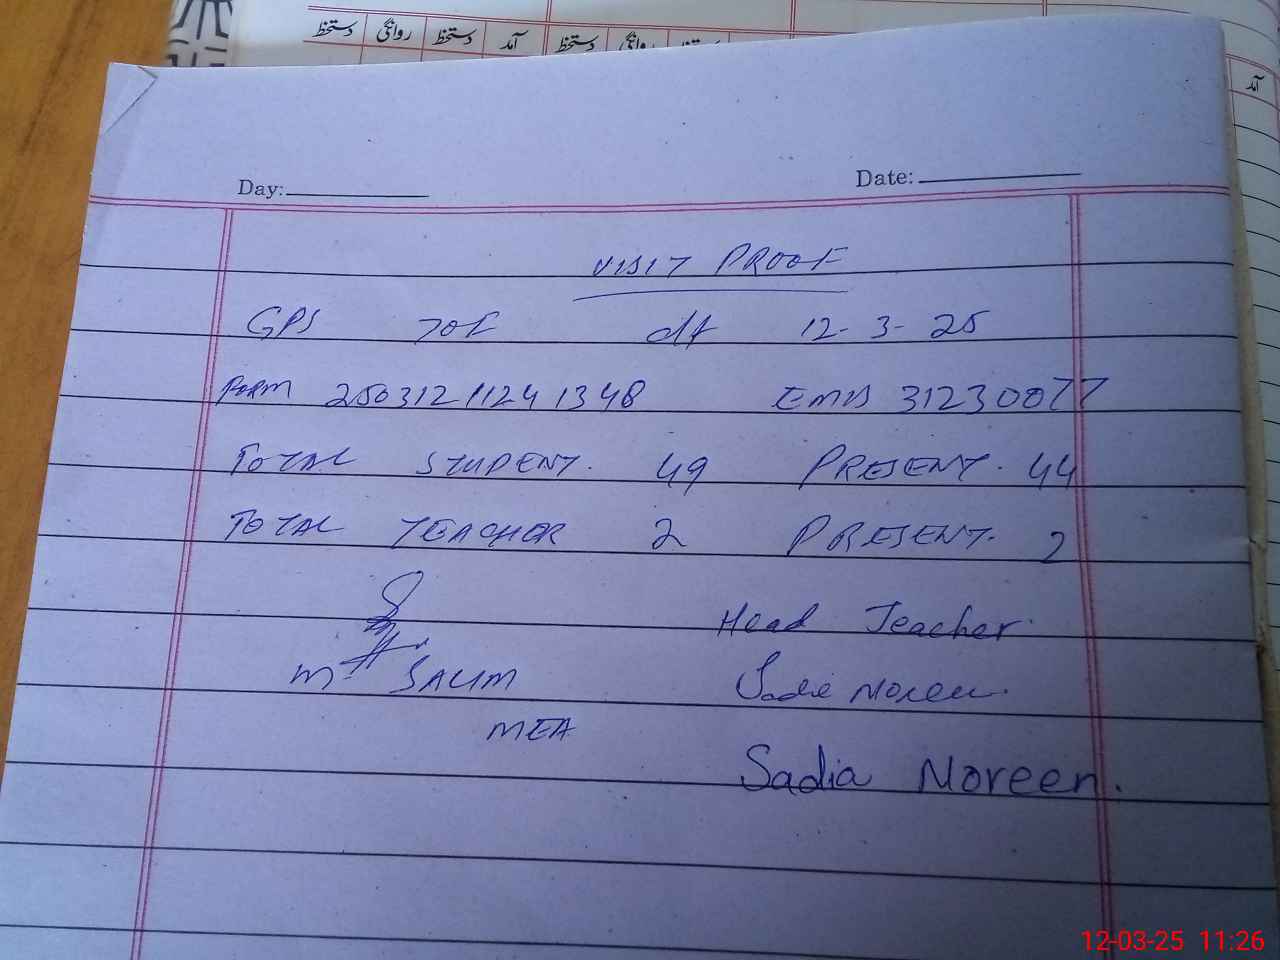 دستخط روانگی دستخط آمد دستخط روانگی
آمد
Day: Date:
VISIT PROOF
GPS 70F dt 12-3-25
FORM 2503121124 1348 EMIS 31230077
TOTAL STUDENT. 49 PRESENT. 44
TOTAL TEACHER 2 PRESENT. 2
Head Teacher
M. SALIM Sadia Noreen.
MEA
Sadia Noreen.
12-03-25 11:26